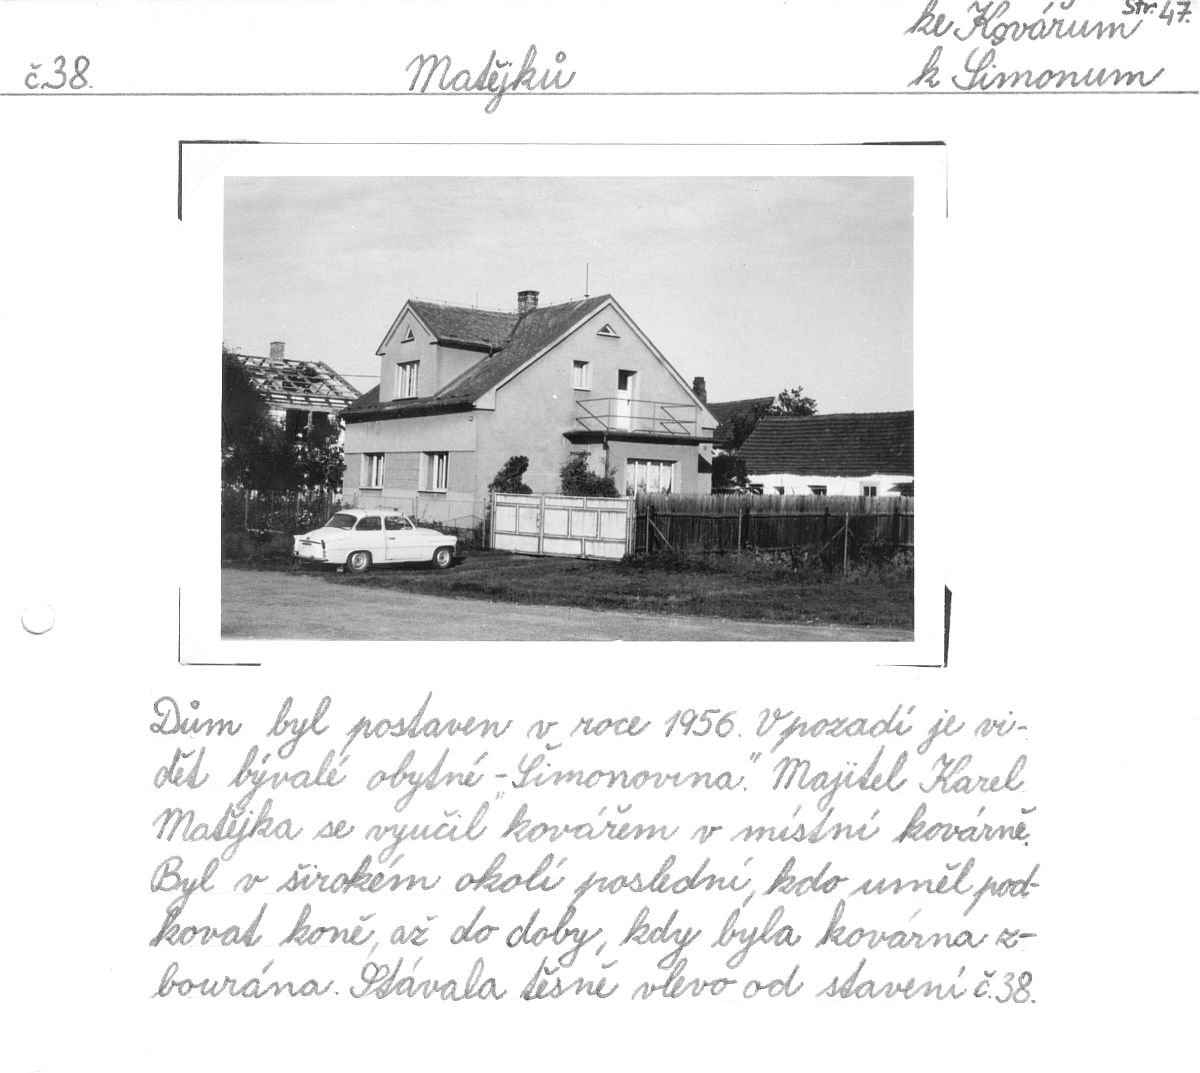 Str. 47.
ke Kovářum
č.38. Matějků k Šimonum
Dům byl postaven v roce 1956. V pozadí je vi-
dět bývalé obytné - „Šimonovna". Majitel Karel
Matějka se vyučil kovářem v místní kovárně.
Byl v širokém okolí poslední, kdo uměl pod-
kovat koně, až do doby, kdy byla kovárna z-
bourána. Stávala těsně vlevo od stavení č.38.